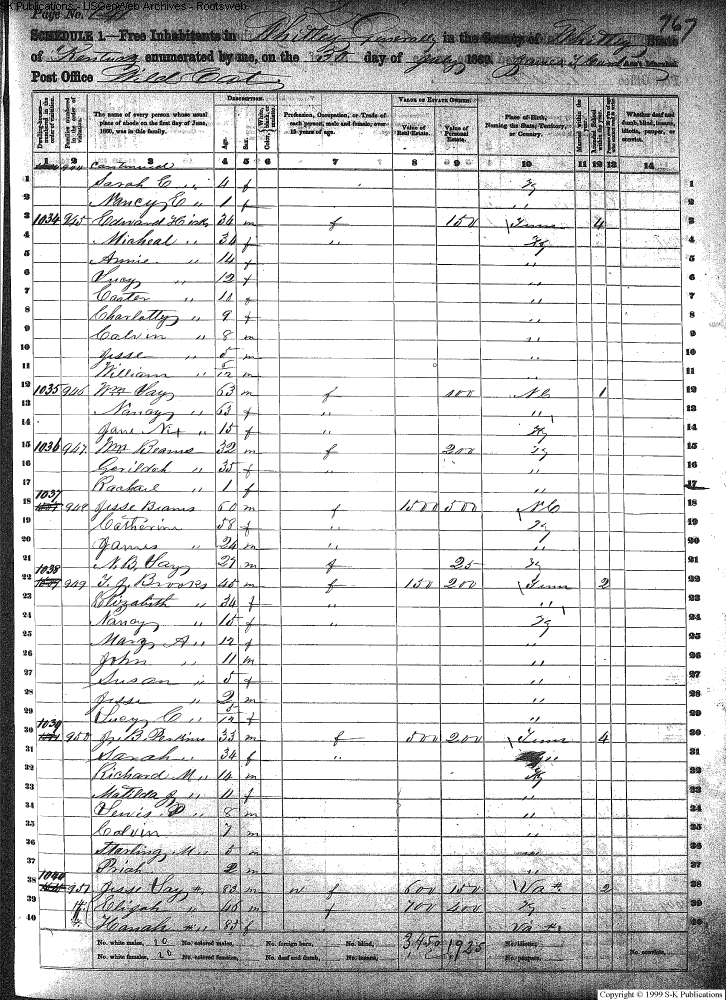 S-K Publications - USGenWeb Archives - Rootsweb
Page No. 967
SCHEDULE 1.—Free Inhabitants in Whitley Generally in the County of Whitley State
of Kentucky enumerated by me, on the day of July 1860. Ass't Marshal.
Post Office Wild Cat
DESCRIPTION. VALUE OF ESTATE OWNED.
Dwelling-houses—numbered in the order of visitation. Families numbered in the order of visitation. The name of every person whose usual place of abode on the first day of June, 1860, was in this family. Age. Sex. Color, White, black, or mulatto. Profession, Occupation, or Trade of each person, male and female, over 15 years of age. Value of Real Estate. Value of Personal Estate. Place of Birth, Naming the State, Territory, or Country. Married within the year. Attended School within the year. Whether deaf and dumb, blind, insane, idiotic, pauper, or convict.
1 2 3 4 5 6 7 8 9 10 11 12 13 14
continued
1 Sarah C " 4 f Ky 1
2 Nancy C " 1 f " 2
3 1034 945 Edward Hicks 34 m f 150 Tenn 4 3
4 Micheal " 34 f " Ky 4
5 Annie " 14 f " 5
6 Lucy " 12 f " 6
7 Easter " 10 f " 7
8 Charlotty " 9 f " 8
9 Calvin " 8 m " 9
10 Jesse " 5 m " 10
11 William " 5/12 m " 11
12 1035 946 Wm Say 63 m f 100 NC 1 12
13 Nancy " 63 f " " 13
14 Jane " 15 f " Ky 14
15 1036 947 Wm Beams 32 m f 200 Ky 15
16 " 35 f " " 16
17 Rachael " 1 f " 17
18 1037 948 Jesse Beams 60 m f 1500 500 NC 18
19 Catherine 58 f " Ky 19
20 James " 24 m " " 20
21 N. B. Say 27 m f 25 Ky 21
22 1038 949 T. J. Brooks 45 m f 150 200 Tenn 2 22
23 Elizabeth " 34 f " " 23
24 Nancy " 15 f " Ky 24
25 Mary A " 12 f " 25
26 John " 11 m " 26
27 Susan " 5 f " 27
28 Jesse " 2 m " 28
29 Lucy C " 5/12 f " 29
30 1039 950 B. Perkins 33 m f 500 200 Tenn 4 30
31 Sarah " 34 f " " 31
32 Richard M " 14 m Ky 32
33 Matilda J " 11 f " 33
34 Lewis D " 8 m " 34
35 Colvin " 7 m " 35
36 Starling M " 5 m " 36
37 Priah " 2 m " 37
38 1040 951 Jesse Say 83 m f 600 150 Va 2 38
39 Elijah " 46 m f 700 400 Ky 39
40 Hanah " 85 f Va 40
No. white males, 20 No. colored males, No. foreign born, No. blind, 3,450 1925 No. idiotic,
No. white females, 20 No. colored females, No. deaf and dumb, No. insane, No. paupers, No. convicts,
Copyright © 1999 S-K Publications